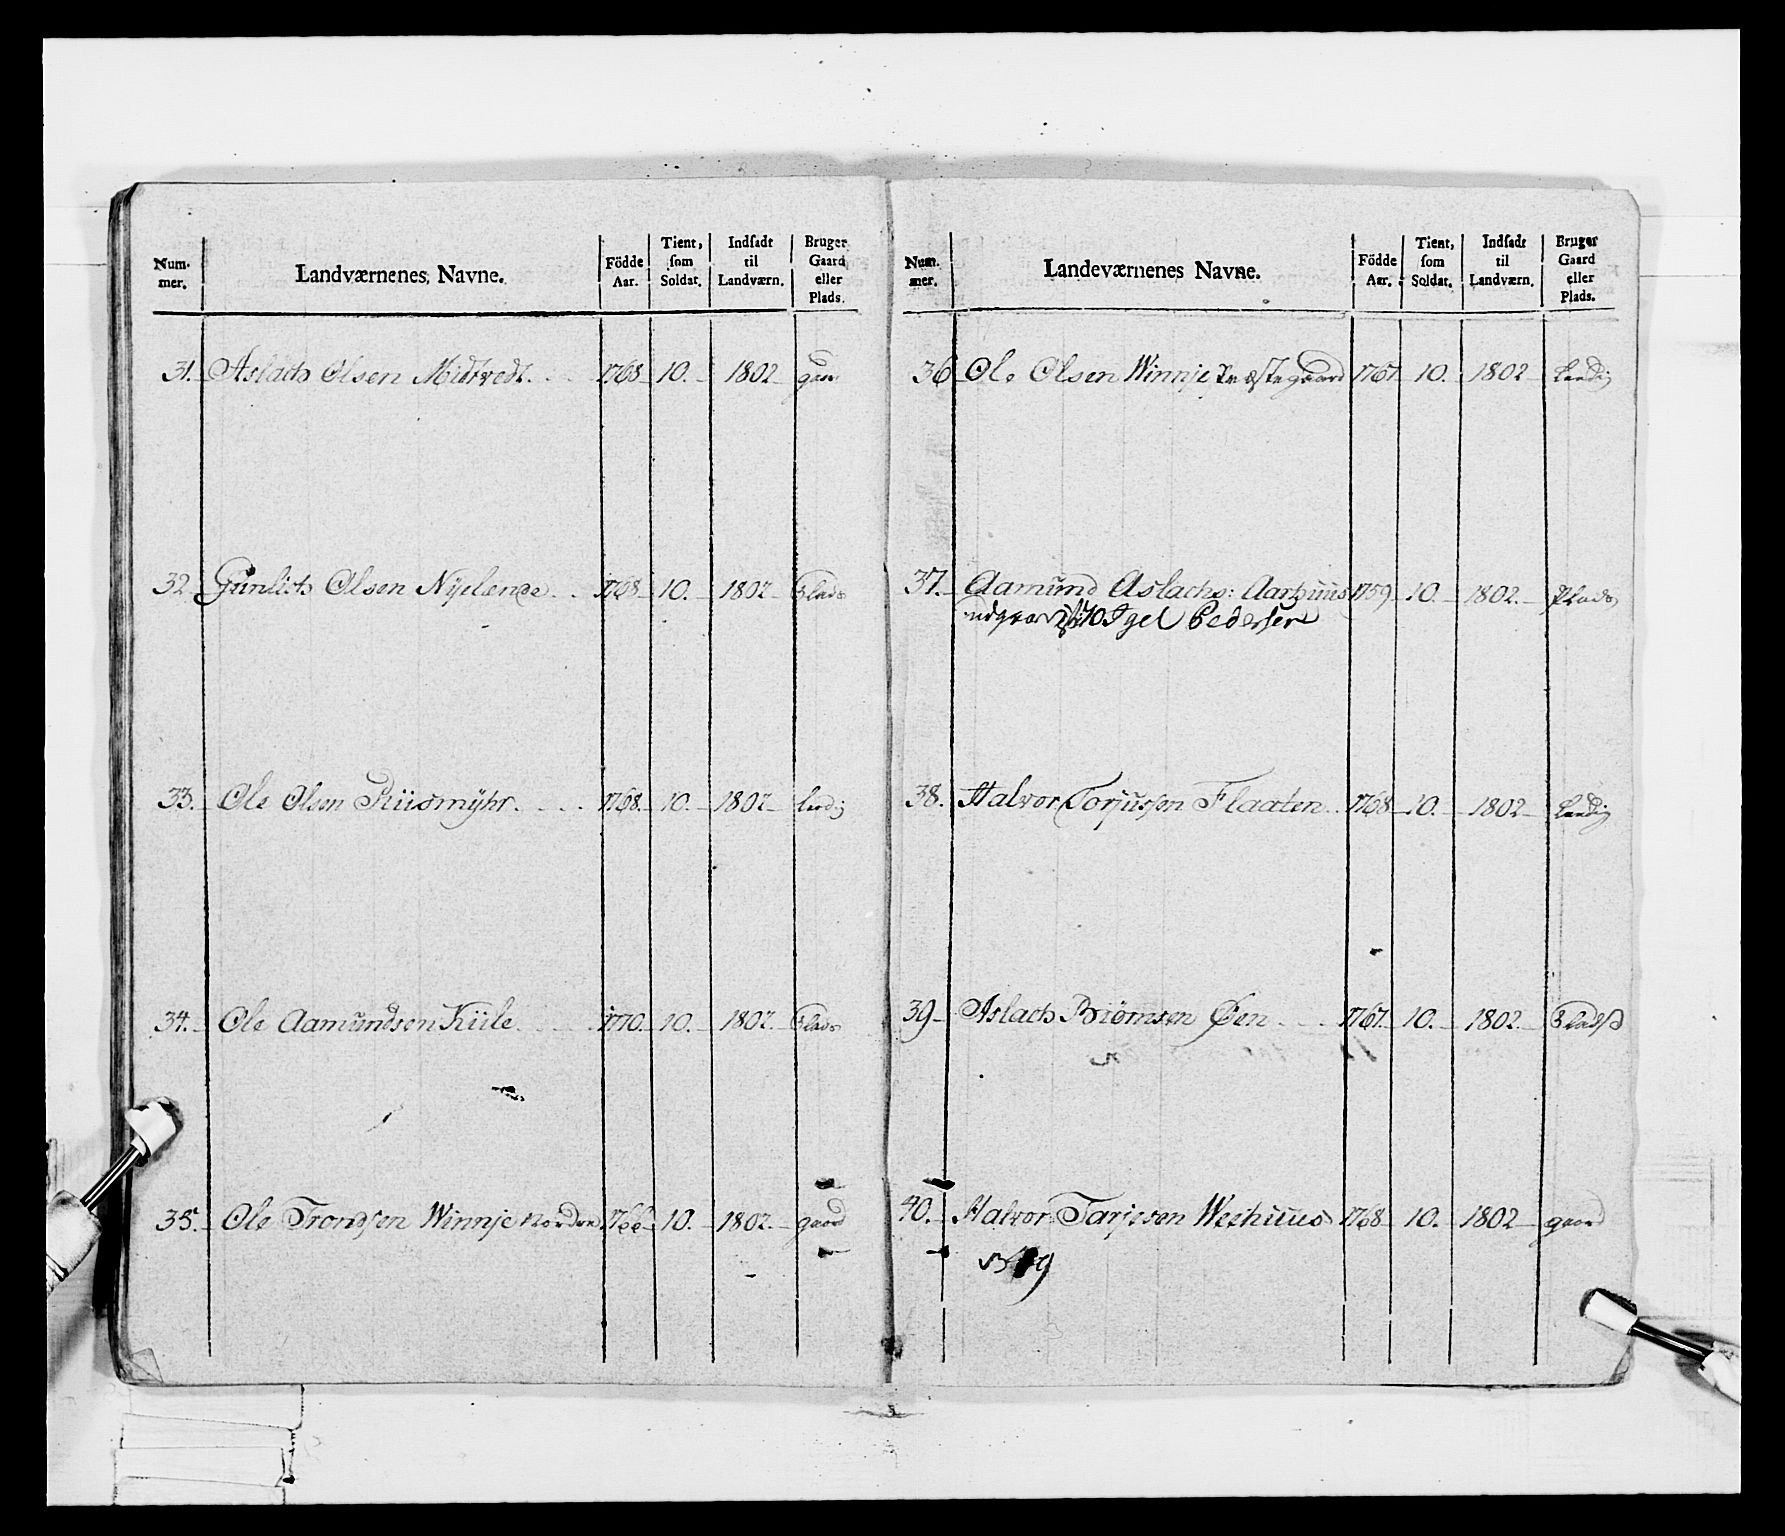 Num-
mer.
Landværnenes, Navne.
Födde
Aar.
Tient,
som
Soldat.
Indsadt
til
Landværn.
Bruger
Gaard
eller
Plads.
31. Aslach Olsen Midtvedt. 1768 10. 1802 gaar
32 Gunlich Olsen Nyelænde. 1768 10. 1802 Plads
33. Ole Olsen Riismyhr. 1768. 10. 1802 ledig
34. Ole Aamundsen Kiile 1770. 10. 1802. Plads
35. Ole Trondsen Winnje Nordre 1766 10. 1802. gaard
Num.
mer.
Landeværnenes Navne.
Födde
Aar.
Tient,
som
Soldat.
Indsadt
til
Landværn.
Bruger
Gaard
eller
Plads.
36 Ole Olsen Winnje Præstegaard 1767 10. 1802 Leedig
37. Aamund Aslachs: Aarhuus 1759. 10. 1802. Plads
Pedersen
38. Halvor Torjussen Flaaten 1768 10. 1802 Leedig
39 Aslach Biörnsen Öen 1767. 10. 1802. Pladss
40. Halvor Tarjesen Weehuus 1768 10. 1802 gaard